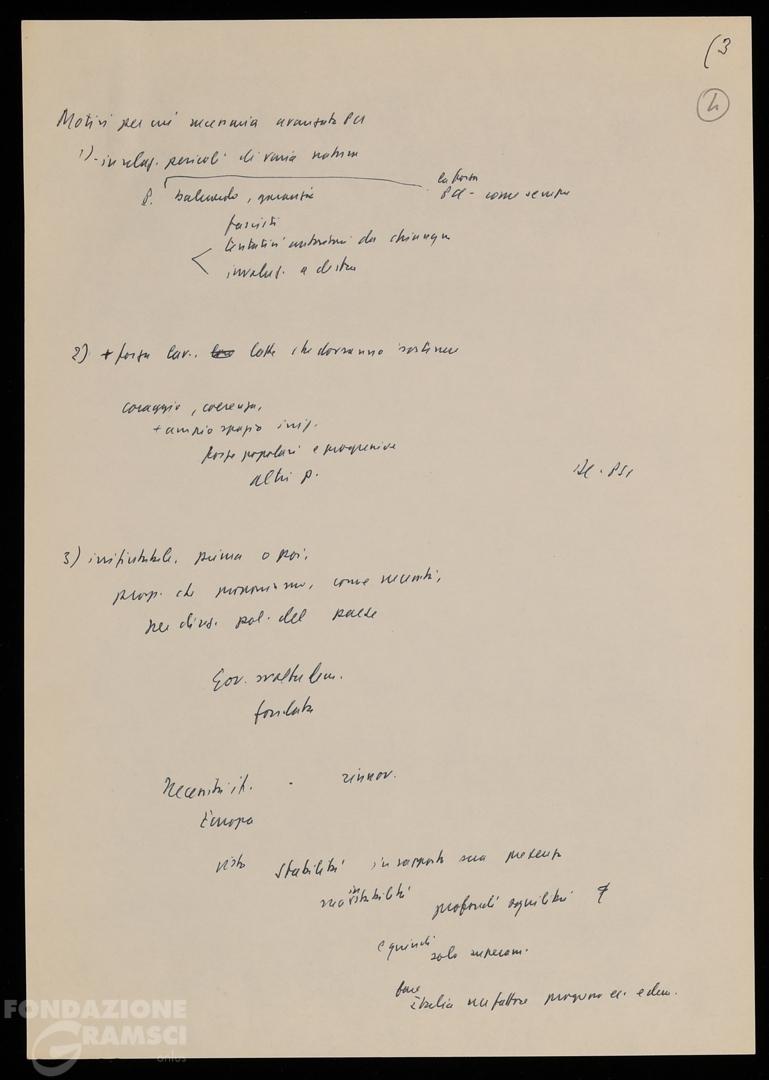 (3
4
Motivi per cui necessaria avanzata PCI
1) - in relaz. pericoli di varia natura
P. baluardo, garanzia
la forza
PCI - come sempre
fascisti
tentativi autoritari da chiunque
involuz. a destra
2) + forza lav. lotte che dovranno sostenere
coraggio, coerenza,
+ ampio spazio iniz.
forze popolari e progressive
altri p.
DC - PSI
3) inevitabile, prima o poi,
prop. che proponiamo, come necessità,
per direz. pol. del paese
Gov. svolta dem.
fondata
Necessità it. - rinnov.
Europa
vista stabilità in rapporto sua presenza
sua instabilità
profondi squilibri
e quindi
solo superam.
fare
Italia un fattore progresso ec. e dem.
FONDAZIONE
GRAMSCI
onlus